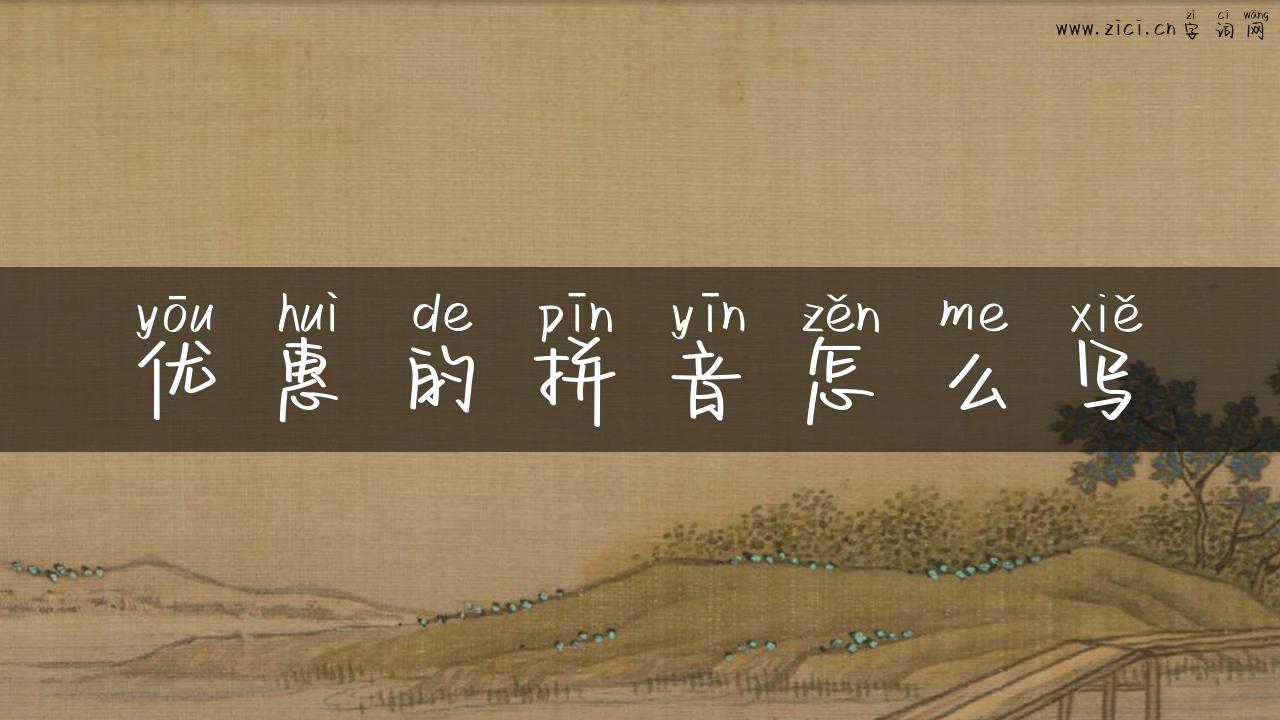 zì cí wǎng
www.zici.cn 字 词 网
yōu huì de pīn yīn zěn me xiě
优 惠 的 拼 音 怎 么 写